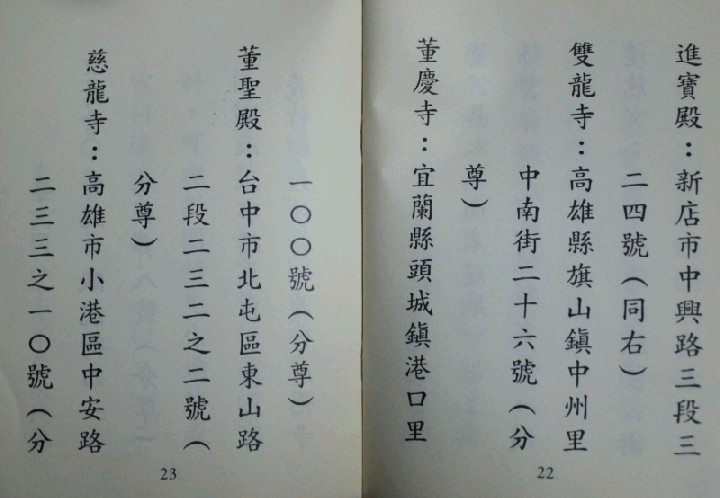 進寶殿：新店市中興路三段三
二四號（同右）
雙龍寺：高雄縣旗山鎮中州里
中南街二十六號（分
尊）
董慶寺：宜蘭縣頭城鎮港口里
22
一〇〇號（分尊）
董聖殿：台中市北屯區東山路
二段二三二之二號（
分尊）
慈龍寺：高雄市小港區中安路
二三三之一〇號（分
23